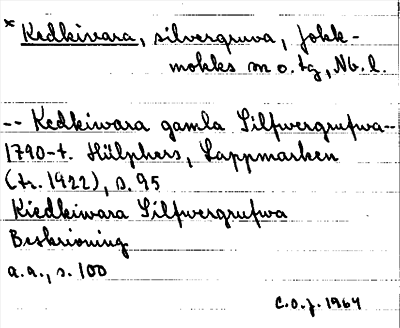 * Kedkivara, silvergruva, Jokk-
mokks sn o. tg, Nb. l.
-- Kedkiwara gamla Silfwergrufwa--
1790-t. Hülphers, Lappmarken
(tr. 1922), s. 95
Kiedkiwara Silfwergrufwa
Beskrivning
a.a., s. 100
C.O.J. 1964